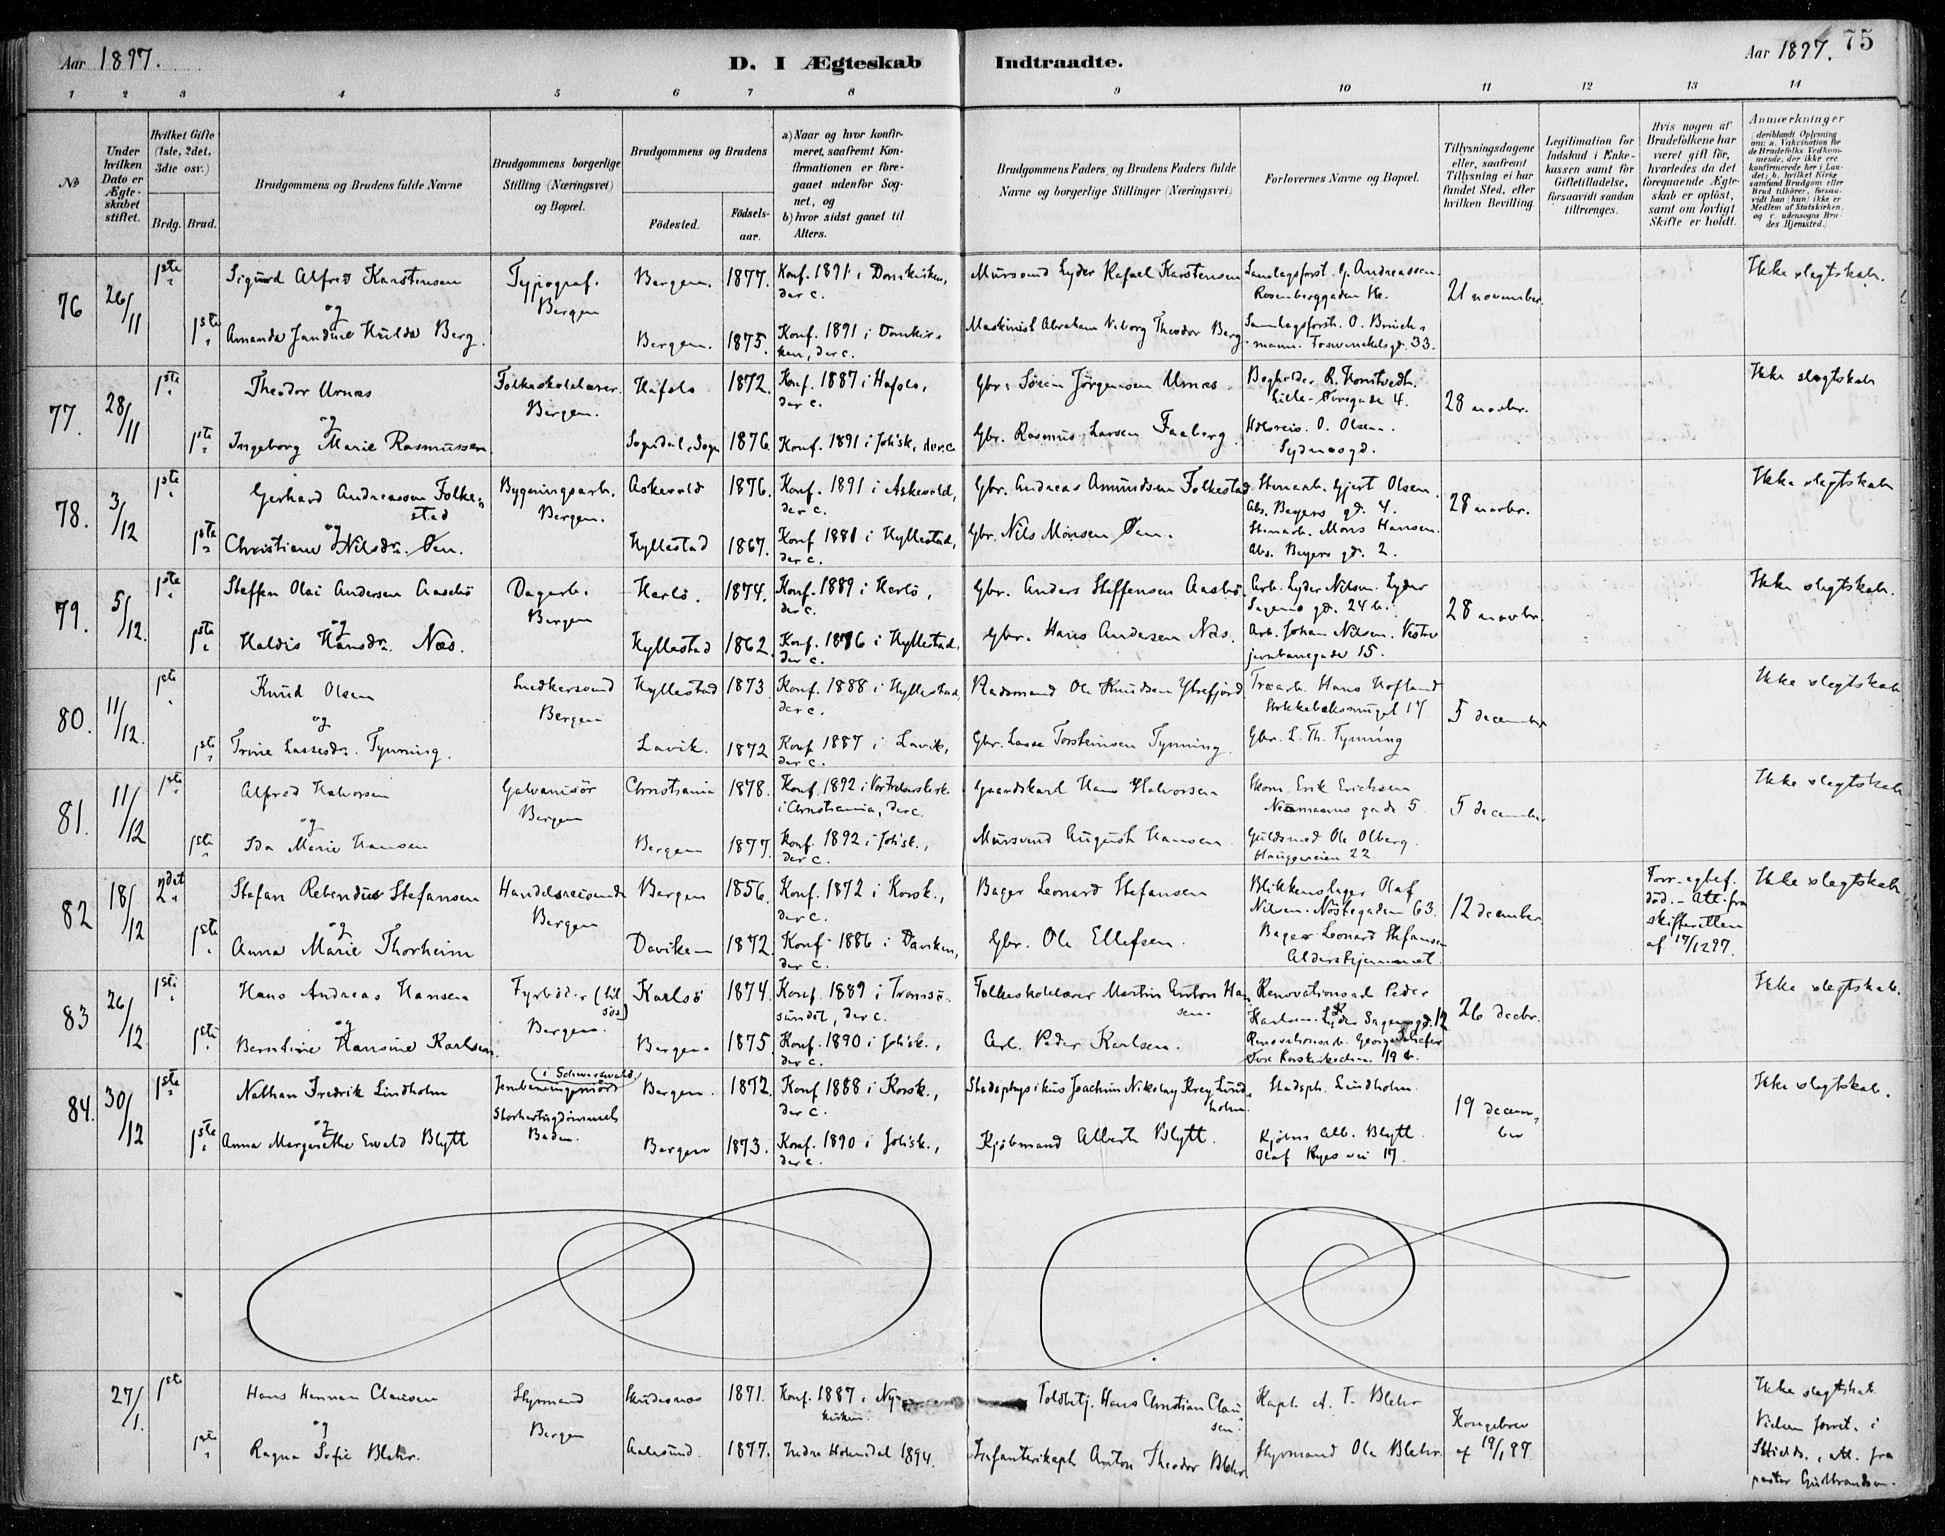 Aar 1897.
D. I Ægteskab Indtraadte.
Aar 1897.
75
1 2 3 4 5 6 7 8 9 10 11 12 13 14
No
Under hvilken Dato er Ægteskabet stiftet.
Hvilket Gifte (1ste, 2det, 3die osv.)
Brdg. Brud.
Brudgommens og Brudens fulde Navne
Brudgommens borgerlige Stilling (Næringsvei) og Bopæl.
Brudgommens og Brudens
Födested.
Födsels-aar.
a) Naar og hvor konfirmeret, saafremt Konfirmationen er foregaaet udenfor Sognet, og
b) hvor sidst gaaet til Alters.
Brudgommens Faders, og Brudens Faders fulde Navne og borgerlige Stillinger (Næringsvei)
Forlovernes Navne og Bopæl.
Tillysningsdagene eller, saafremt Tillysning ei har fundet Sted, efter hvilken Bevilling.
Legitimation for Indskud i Enkekassen samt for Giftetilladelse, forsaavidt saadan tiltrænges.
Hvis nogen af Brudefolkene har været gift för, hvorledes da det foregaaende Ægteskab er oplöst, samt om lovligt Skifte er holdt.
Anmærkninger
(deriblandt Oplysning om: a. Vakcination for de Brudefolks Vedkommende, der ikke ere konfirmerede her i Landet; b. hvilket Kirkesamfund Brudgom eller Brud tilhörer, forsaavidt han (hun) ikke er Medlem af Statskirken, og c. udensogns Brudes Hjemsted.)
76 26/11 1ste Sigurd Alfred Karstensen Typograf. Bergen Bergen. 1877. Konf. 1891 i Domkirken, der c. Mursvend Lyder Rafael Karstensen Samlagsforst. G. Andreassen. 21 november. Ikke slegtskab.
og
1ste Amanda Jandine Hulda Berg. Bergen. 1875. Konf. 1891 i Domkirken, der c. Maskinist Abraham Theodor Berg Samlagsforst. O. Brinchmann. Fosswinckelsgd. 33.
77. 28/11 1ste Theodor Urnæs Folkeskolelærer. Bergen. Hafslo 1872. Konf. 1887 i Hafslo, der c. Gbr. Sören Jörgensen Urnæs Bogholder R. 28 novbr. Ikke slegtskab
og
1ste Ingeborg Marie Rasmussen Sogndal, Sogn 1876. Konf. 1891 i Joh.sk., der c. Gbr. Rasmus Larsen Faaberg. O. Olsen. Sydnæsgd.
78. 3/12 1ste Gerhard Andreassen Folkestad Bygningsarb. Bergen. Askevold 1876. Konf. 1891 i Askevold, der c. Gbr. Andreas Amundsen Folkestad Stenarb. Gjert Olsen. Abs. Beyers gd. 4. 28 novbr. Ikke slegtskab
og
1ste Christiane Nilsdr. Øen. Hyllestad 1867. Konf 1881 i Hyllestad, der c. Gbr. Nils Monsen Øen. Stenarb. Mons Hansen. Abs. Beyers gd. 2.
79. 5/12. 1ste Steffen Olai Andersen Aasebö Dagarb. Bergen Herlö. 1874. Konf. 1889 i Herlö, der c. Gbr. Anders Steffensen Aasebö Arb. Lyder Nilsen. Lyder Sagens gd. 24 b. 28 novbr. Ikke slegtskab.
og
1ste Haldis Hansdr. Næs. Hyllestad 1862. Konf. 1876 i Hyllestad, der c. Gbr. Hans Andersen Næs. Arb. Johan Nilsen. Vestre 15.
80. 11/12. 1ste Knud Olsen Snedkersvend Bergen Hyllestad 1873. Konf. 1888 i Hyllestad, der c. Ole Knudsen Ytrefjord Træarb. Hans Hofland 17 5 december Ikke slegtskab
og
1ste Trine Lassesdr. Tynning. Lavik. 1872 Konf 1887 i Lavik, der c. Gbr. Lasse Torsteinsen Tynning. Gbr. L. Th. Tynning
81. 11/12 1ste Alfred Halvorsen Galvanisör Bergen Christiania 1878. Konf. 1892 i Vor Frelsers kirke i Christiania, der c. Gaardskarl Hans Halvorsen Skom. Erik Erichsen Neumanns gade 5 5 december Ikke slegtskab
og
1ste Ida Marie Hansen Bergen 1877. Konf. 1892 i Joh.sk., der c. Mursvend August Hansen. Guldsmed Ole Olberg. Haugeveien 22
82 18/12 2det Stefan Stefansen Handelsreisende Bergen Bergen 1856. Konf. 1872 i Korsk., der c. Bager Leonard Stefansen Blikkenslager Olaf Nilsen. Nöstegaden 63. 12 december Forr. egtef. död. - Att. fra skifteretten af 17/12 97. Ikke slegtskab
og
1ste Anna Marie Thorheim Daviken 1872. Konf. 1886 i Daviken, der c. Gbr. Ole Ellefsen. Bager Leonard Stefansen Aldershjemmet.
83 26/12 1ste Hans Andreas Hansen Fyrböder (til söes) Bergen. Karlsö 1874. Konf. 1889 i Tromsösundet, der c. Folkeskolelærer Martin Anton Hansen. Renovationsarb. Peder Karlsen. Lyder Sagens gd. 12 26 decbr. Ikke slegtskab.
og
1ste Berntine Hansine Karlsen. Bergen 1875 Konf. 1890 i Joh.sk., der c. Arb. Peder Karlsen. Renovationsarb. Georg 19 b.
84. 30/12 1ste Nathan Fredrik Lindholm (i Schwarzwald) Storhertugdömmet Baden. Bergen. 1872. Konf 1888 i Korsk., der c. Stadsphysikus Joachim Nikolay Krey Lindholm. Stadsph. Lindholm. 19 december Ikke slegtskab.
og
1ste Anna Margarethe Ewald Blytt Bergen 1873. Konf. 1890 i Joh.sk., der c. Kjöbmand Albert Blytt. Kjöbm. Alb. Blytt. Olaf Ryes vei 17.
27/1. 1ste Hans Herman Clausen Styrmand Bergen Skudesnæs 1871. Konf. 1887 i Nykirken. Toldbetj. Hans Christian Clausen. Kapt. A. T. Blehr Kongebrev af 19/1 97. Ikke slegtskab. Vielsen forret. i Shields, att. fra pastor Gudbrandsen.
og
1ste Ragna Sofie Blehr. Aalesund. 1877. Indre Holmedal 1894. Infanterikapt. Anton Theodor Blehr Styrmand Ole Blehr.